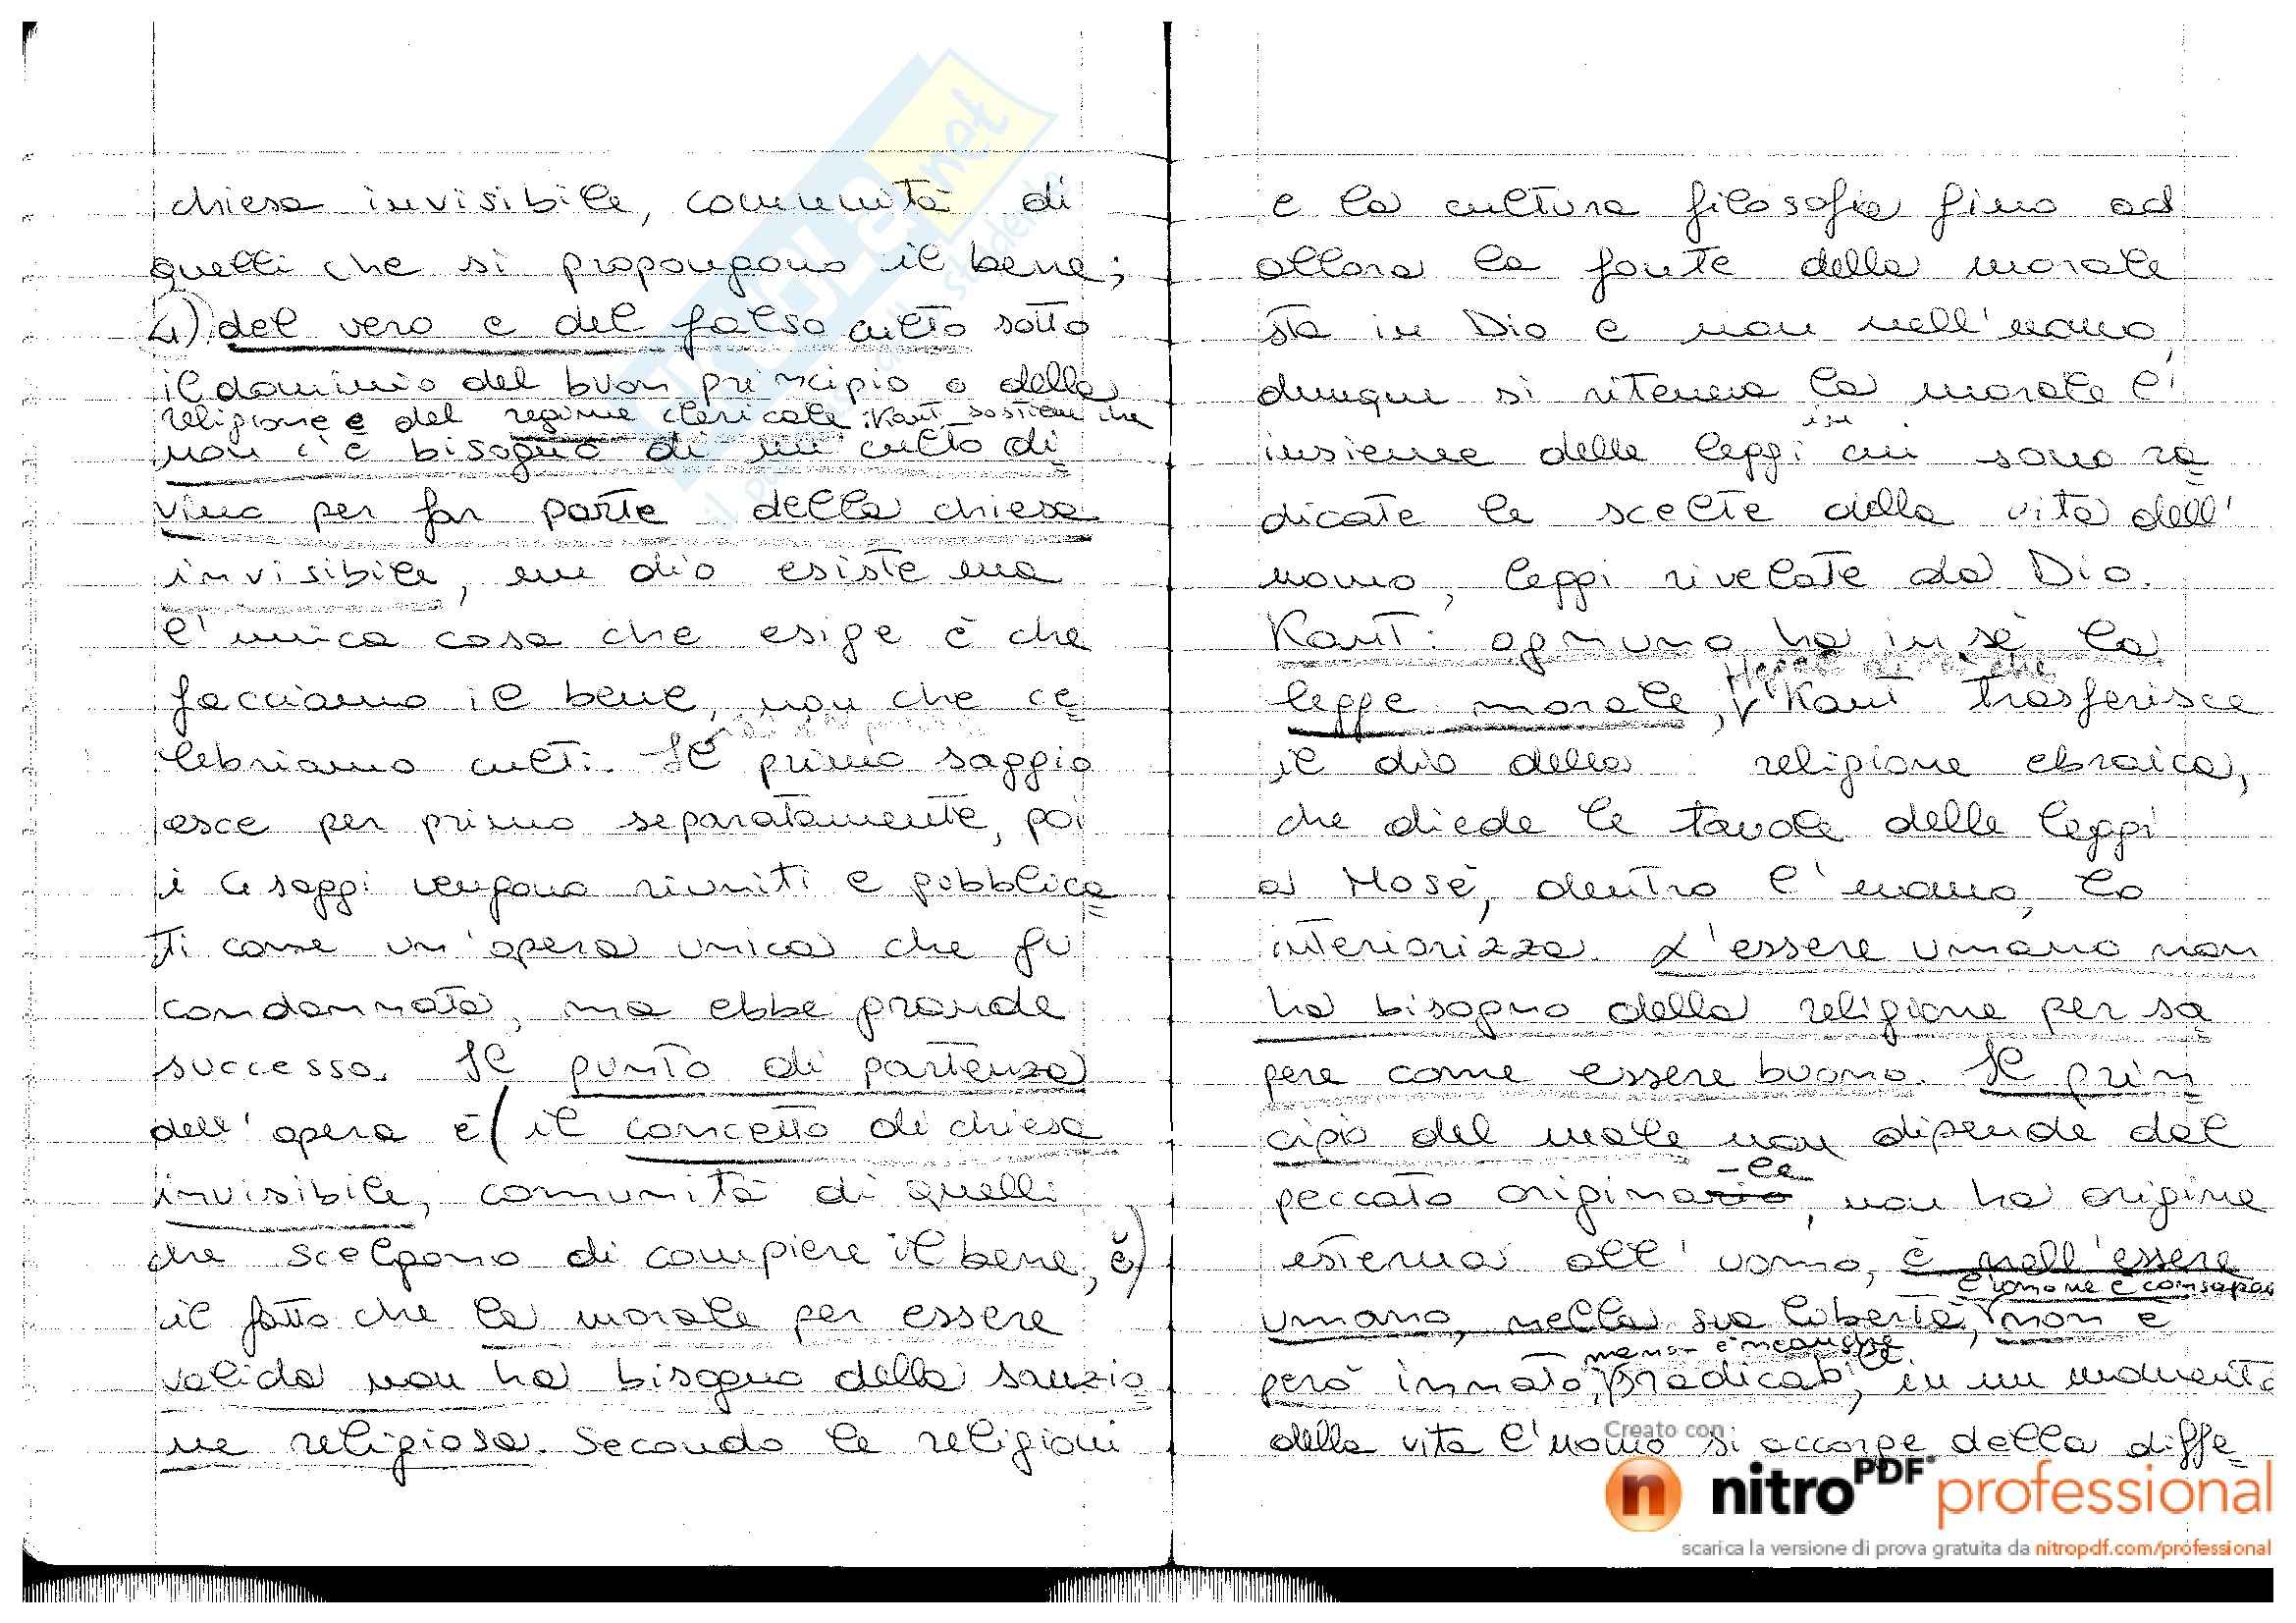 chiesa invisibile, comunità di
quelli che si propongono il bene;
4) del vero e del falso culto sotto
il dominio del buon principio o della
religione e del regime clericale: Kant sostiene che
non c'è bisogno di un culto di
vino per far parte della chiesa
invisibile, un dio esiste ma
l'unica cosa che esige è che
facciamo il bene, non che ce
lebriamo culti. Il primo saggio
esce per primo separatamente, poi
i 4 saggi vengono riuniti e pubblica
ti come un'opera unica che fu
condannata, ma ebbe grande
successo. Il punto di partenza
dell'opera è (il concetto di chiesa
invisibile, comunità di quelli
che scelgono di compiere il bene, è)
il fatto che la morale per essere
valida non ha bisogno della sanzio
ne religiosa. Secondo le religioni
e la cultura filosofia fino ad
allora la fonte della morale
sta in Dio e non nell'uomo,
dunque si riteneva la morale l'
insieme delle leggi in cui sono ra
dicate le scelte della vita dell'
uomo, leggi rivelate da Dio.
Kant: ognuno ha in sè la
Hegel dirà che
legge morale, Kant trasferisce
il dio della religione ebraica,
che diede le tavole delle leggi
a Mosè, dentro l'uomo, lo
interiorizza. L'essere umano non
ha bisogno della religione per sa
pere come essere buono. Il prin
cipio del male non dipende dal
-le
peccato originario, non ha origine
esterna all'uomo, è nell'essere
l'uomo ne è consapev
umano, nella sua libertà, non è
ma non è neanche
però innato, sradicabile, in un momento
della vita l'uomo si accorge della diffe
Creato con
nitroPDF professional
scarica la versione di prova gratuita da nitropdf.com/professional